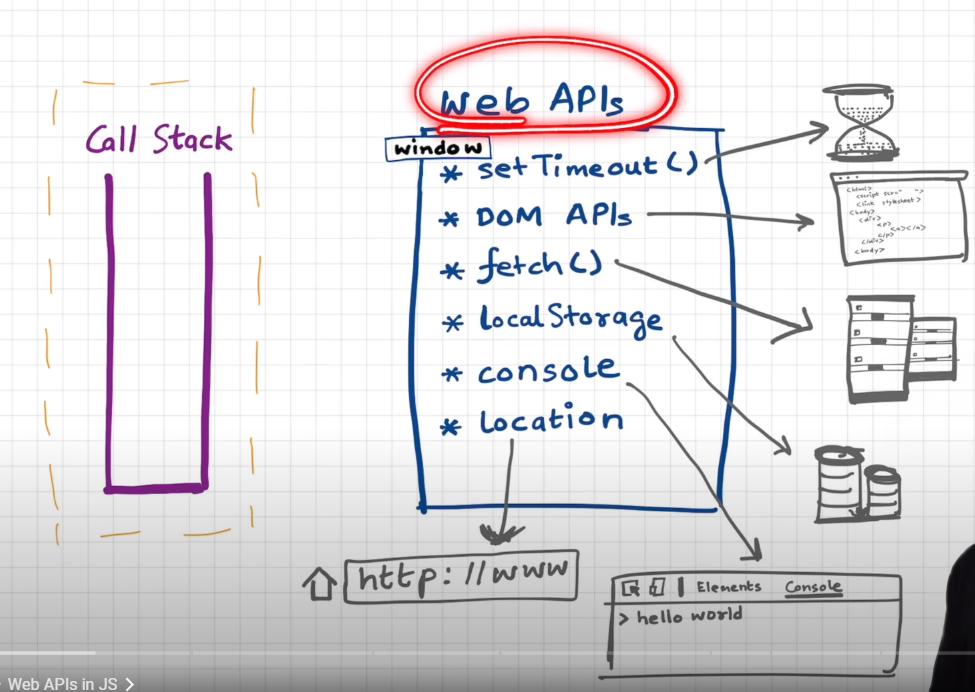 Web APIs
Call Stack
window
* setTimeout()
* DOM APIs
* fetch()
* localStorage
* console
* location
<html>
<link stylesheet>
<body>
<div>
<p>
<a></a>
</p>
</div>
<body>
http://www
Elements Console
> hello world
Web APIs in JS >